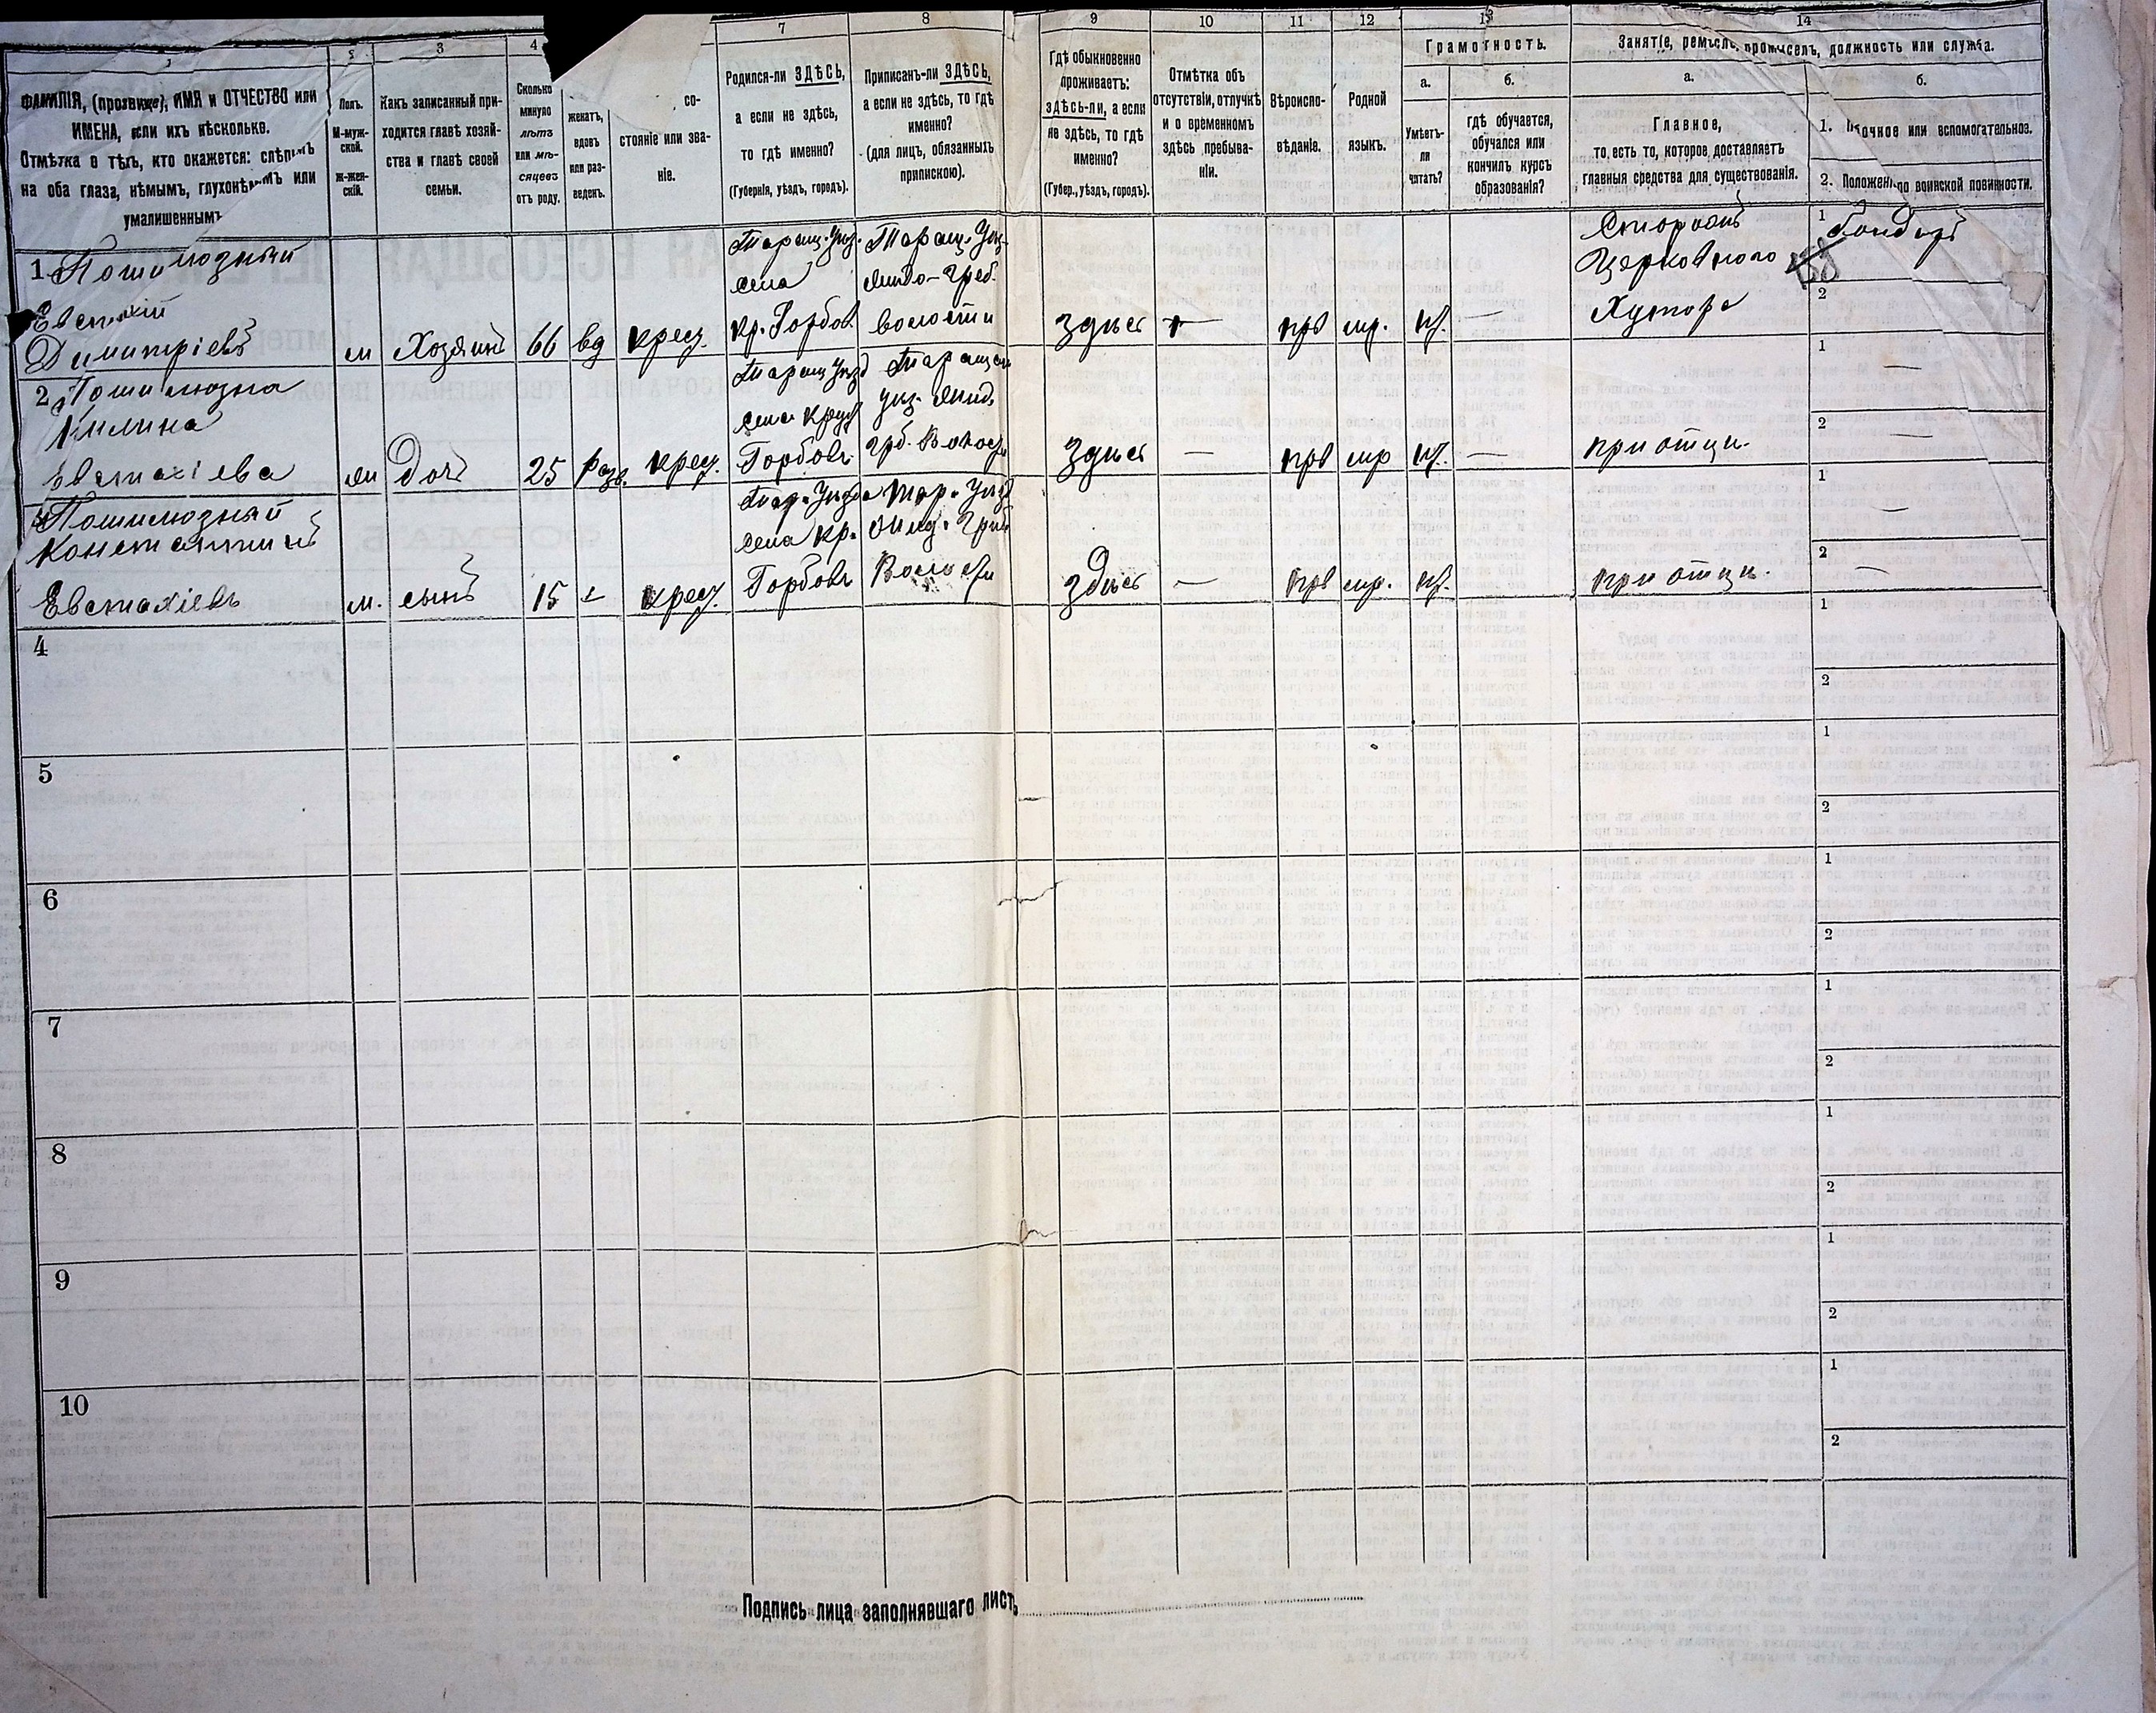 7
8
9
10
11
12
13
14
2
3
4
ФАМИЛІЯ, (прозвище), ИМЯ и ОТЧЕСТВО или
ИМЕНА, если ихъ нѣсколько.
Отмѣтка о тѣхъ, кто окажется: слѣпымъ
на оба глаза, нѣмымъ, глухонѣмымъ или
умалишеннымъ
Полъ.
М-муж-
ской.
Ж-жен-
скій.
Какъ записанный при-
ходится главѣ хозяй-
ства и главѣ своей
семьи.
Сколько
минуло
лѣтъ
или мѣ-
сяцевъ
отъ роду.
женатъ,
вдовъ
или раз-
веденъ.
со-
стояніе или зва-
ніе.
Родился-ли ЗДѢСЬ,
а если не здѣсь,
то гдѣ именно?
(Губернія, уѣздъ, городъ).
Приписанъ-ли ЗДѢСЬ,
а если не здѣсь, то гдѣ
именно?
(для лицъ, обязанныхъ
припискою).
Гдѣ обыкновенно
проживаетъ:
здѣсь-ли, а если
не здѣсь, то гдѣ
именно?
(Губер., уѣздъ, городъ).
Отмѣтка объ
отсутствіи, отлучкѣ
и о временномъ
здѣсь пребыва-
ніи.
Вѣроиспо-
вѣданіе.
Родной
языкъ.
Грамотность.
а.
Умѣетъ-
ли
читать?
б.
гдѣ обучается,
обучался или
кончилъ курсъ
образованія?
Занятіе, ремесло, промыселъ, должность или служба.
а.
Главное,
то есть то, которое доставляетъ
главныя средства для существованія.
б.
1. Побочное или вспомогательное.
2. Положеніе по воинской повинности.
1 Пошилюзный
Евстахій
Димитріевъ
м Хозяинъ 66 вд крес.
Таращ. Уѣз.
села
Кр. Горбов
Таращ. Уѣз.
волости
здѣсь
прв мр. нѣ. —
Сторожъ
Церковного
Хутора
1 бондарь
2
2 Пошилюзна
Акилина
Евстахіева
жи Доч 25 разв. крес.
Таращ Уѣзд
села
Горбовъ
Таращан
уѣз.
здѣсь — прв мр нѣ. —
при отци.
1 —
2 —
3 Пошилюзный
Константинъ
Евстахіевъ
м. сынъ 15 крес.
Тар. Уѣзда
села Кр.
Горбовъ
Тар. Уѣзд
Волости
здѣсь — прв мр. нѣ.
при отци.
1 —
2 —
4
1
2
5
1
2
6
1
2
7
1
2
8
1
2
9
1
2
10
1
2
Подпись лица заполнявшаго листъ